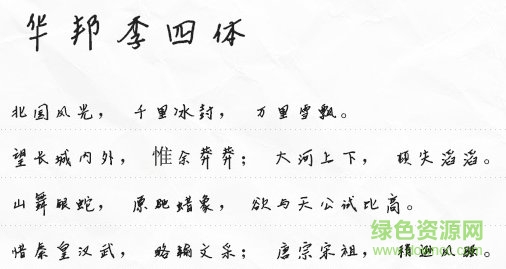 华邦李四体
北国风光， 千里冰封， 万里雪飘。
望长城内外， 惟余莽莽； 大河上下， 顿失滔滔。
山舞银蛇， 原驰蜡象， 欲与天公试比高。
惜秦皇汉武， 略输文采； 唐宗宋祖， 稍逊风骚。
绿色资源网